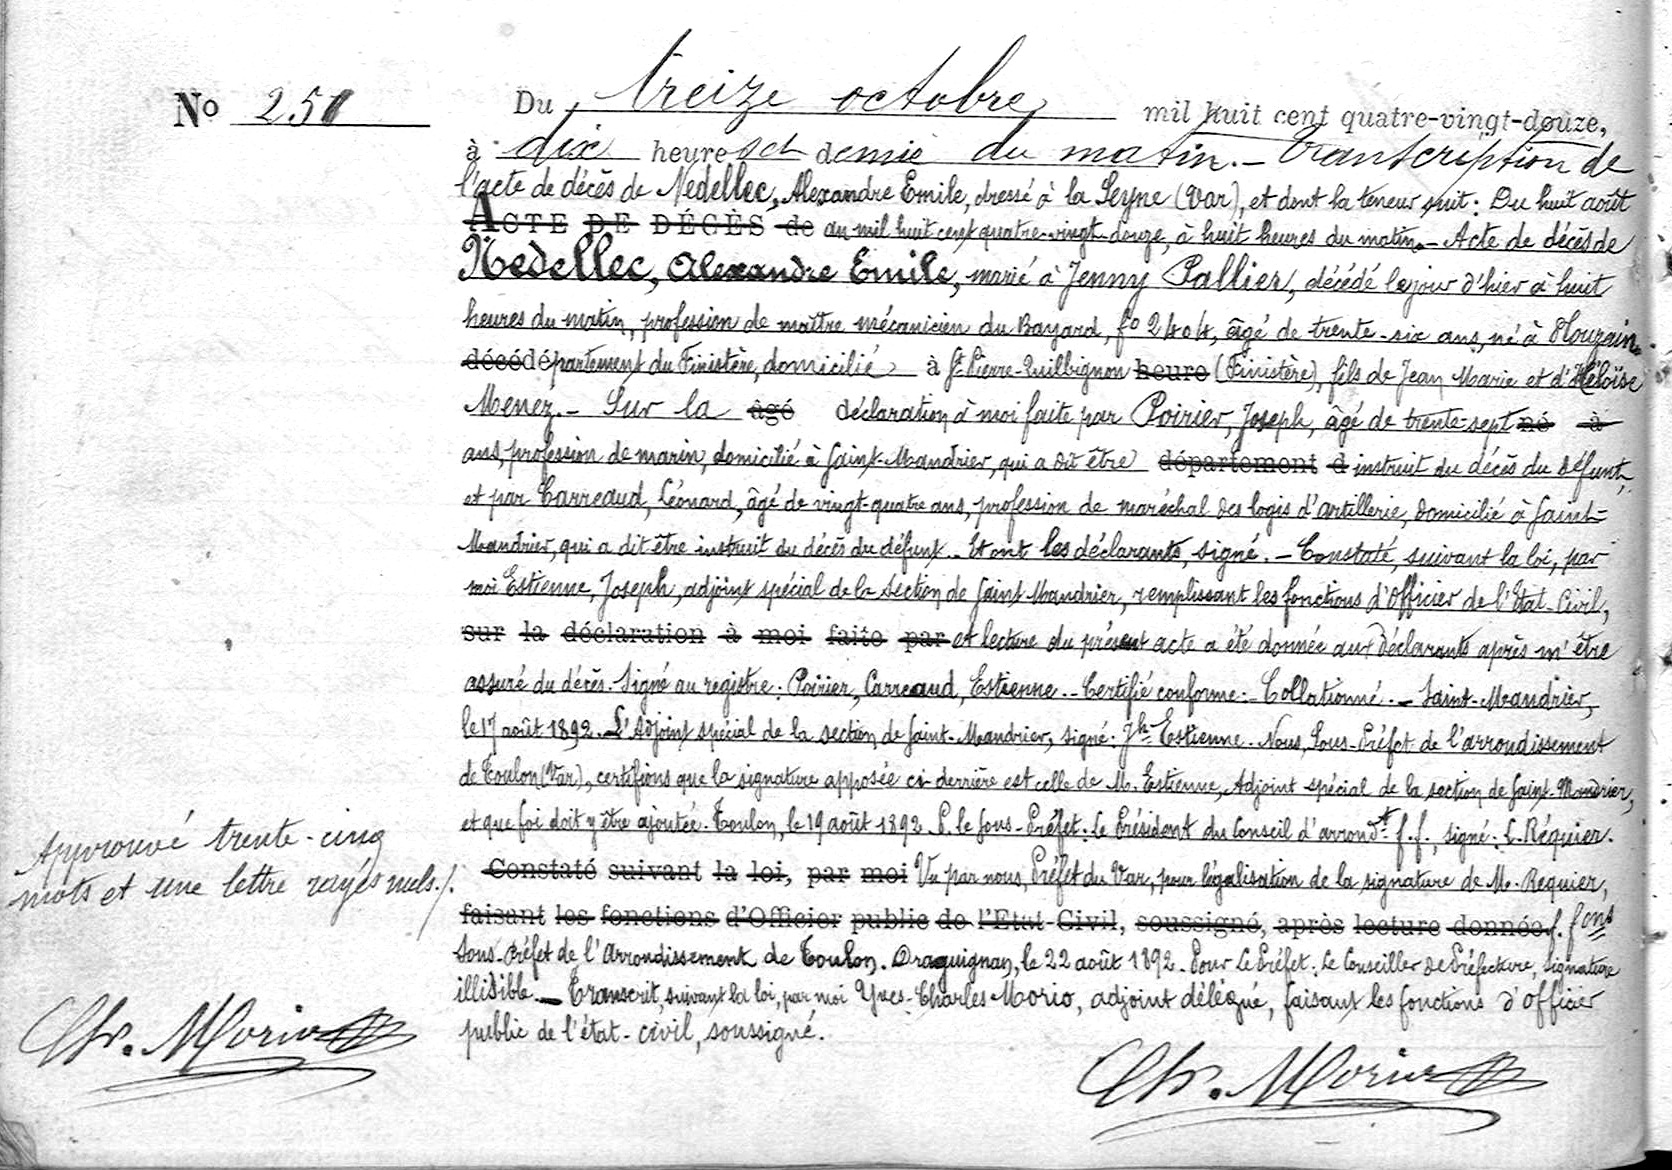 No 251
Du treize octobre mil huit cent quatre-vingt-douze,
à dix heures et demie du matin. - Transcription de
l'acte de décès de Nedellec, Alexandre Emile, dressé à la Seyne (Var), et dont la teneur suit : Du huit août
ACTE DE DÉCÈS de an mil huit cent quatre-vingt-douze, à huit heures du matin. - Acte de décès de
Nedellec, Alexandre Emile, marié à Jenny Pallier, décédé le jour d'hier à huit
heures du matin, profession de maître mécanicien du Bayard, fo 2404, âgé de trente-six ans, né à Plouzain,
décédé département du Finistère, domicilié à St Pierre-Quilbignon heure (Finistère), fils de Jean Marie et d'Héloïse
Menez. - Sur la âgé déclaration à moi faite par Poirier, Joseph, âgé de trente-sept né à
ans, profession de marin, domicilié à Saint-Mandrier, qui a dit être département d instruit du décès du défunt,
et par Carreaud, Léonard, âgé de vingt-quatre ans, profession de maréchal des logis d'artillerie, domicilié à Saint-
Mandrier, qui a dit être instruit du décès du défunt. - Et ont les déclarants, signé. - Constaté, suivant la loi, par
moi Estienne, Joseph, adjoint spécial de la section de Saint Mandrier, remplissant les fonctions d'officier de l'Etat-Civil,
sur la déclaration à moi faite par et lecture du présent acte a été donnée aux déclarants après m'être
assuré du décès. Signé au registre : Poirier, Carreaud, Estienne. - Certifié conforme. - Collationné. - Saint-Mandrier,
le 17 août 1892. - L'Adjoint spécial de la section de Saint-Mandrier, signé : Jh Estienne. Nous, Sous-Préfet de l'arrondissement
de Toulon (Var), certifions que la signature apposée ci-derrière est celle de M. Estienne, Adjoint spécial de la section de Saint-Mandrier,
et que foi doit y être ajoutée. Toulon, le 19 août 1892. P. le Sous-Préfet : Le Président du Conseil d'arrondt f.f., signé : L. Réquier.
Constaté suivant la loi, par moi Vu par nous, Préfet du Var, pour légalisation de la signature de M. Requier,
faisant les fonctions d'Officier public de l'Etat-Civil, soussigné, après lecture donnée f. fons
Sous-Préfet de l'Arrondissement de Toulon. Draguignan, le 22 août 1892. Pour Le Préfet : Le Conseiller de Préfecture, signature
illisible. - Transcrit, suivant la loi, par moi Yves-Charles Morio, adjoint délégué, faisant les fonctions d'officier
public de l'état-civil, soussigné.
Approuvé trente-cinq
mots et une lettre rayés nuls./.
Ch. Morio
Ch. Morio